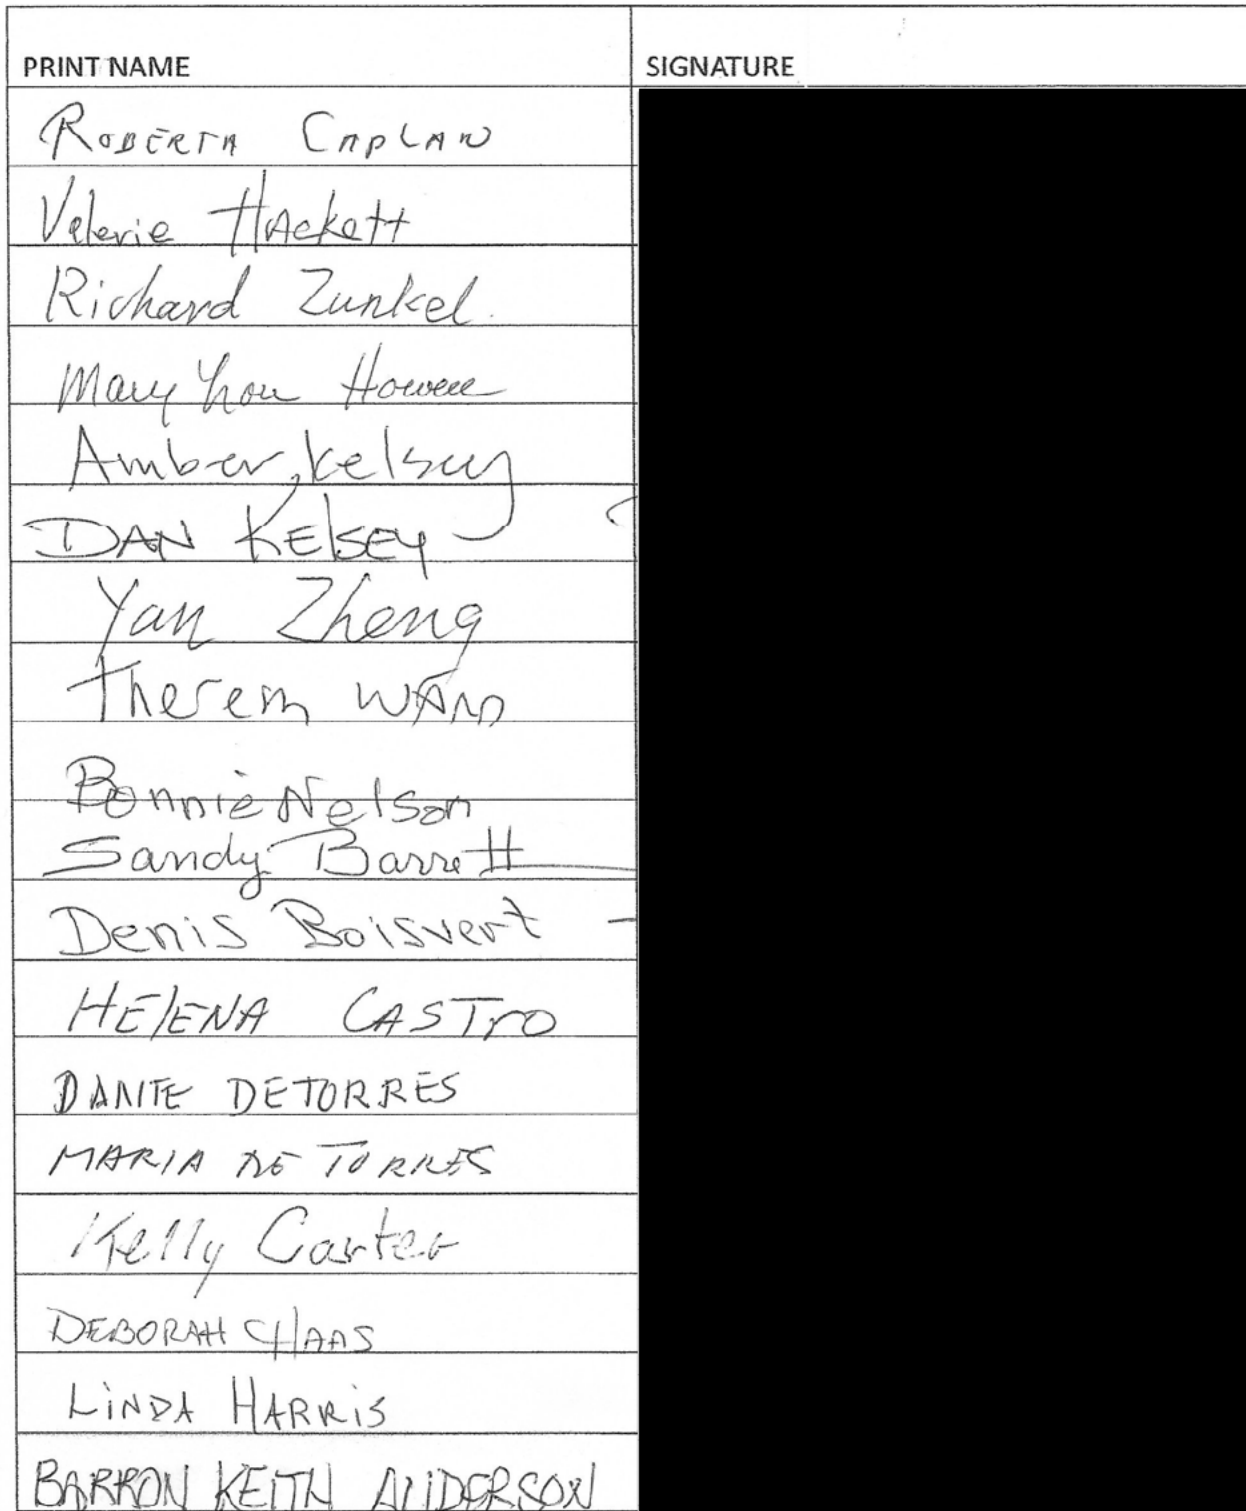 PRINT NAME SIGNATURE
ROBERTA CAPLAN
Valerie Hackett
Richard Zunkel.
Mary Lou
Amber Kelsey
DAN KELSEY
Yan Zheng
WARD
Bonnie Nelson
Sandy Barrett
Denis Boisvert
HELENA CASTRO
DANTE DETORRES
MARIA DE TORRES
Kelly Carter
DEBORAH HAAS
LINDA HARRIS
BARRON KEITH ANDERSON